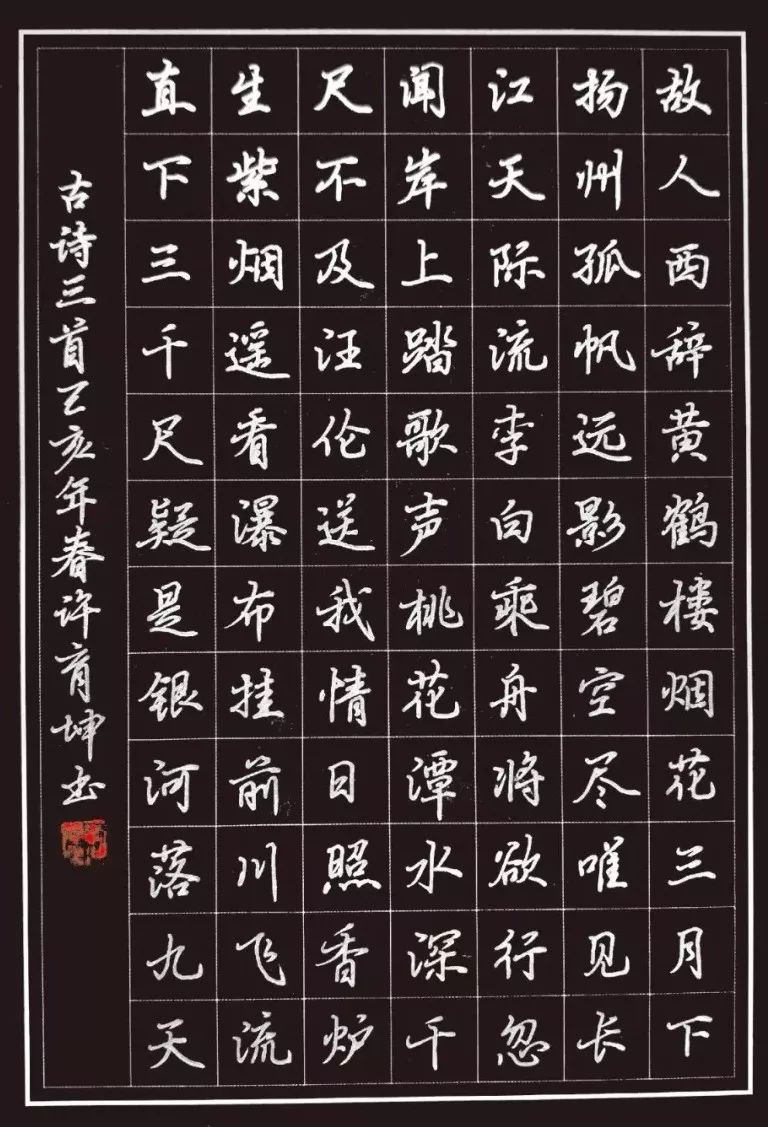 故人西辞黄鹤楼烟花三月下
扬州孤帆远影碧空尽唯见长
江天际流李白乘舟将欲行忽
闻岸上踏歌声桃花潭水深千
尺不及汪伦送我情日照香炉
生紫烟遥看瀑布挂前川飞流
直下三千尺疑是银河落九天
古诗三首乙亥年春许育坤书